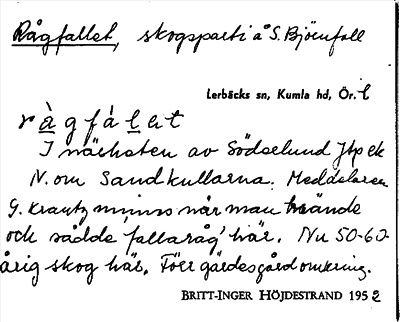 Rågfallet, skogsparti å S. Björnfall
Lerbäcks sn, Kumla hd, Ör. l
råg fálet
I närheten av Södselund Jtp ek
N. om Sandkullarna. Meddelaren
G. Krantz minns når man brände
och sådde fallaråg' här. Nu 50-60-
årig skog här. Förr gärdesgård omkring.
BRITT-INGER HÖJDESTRAND 1952